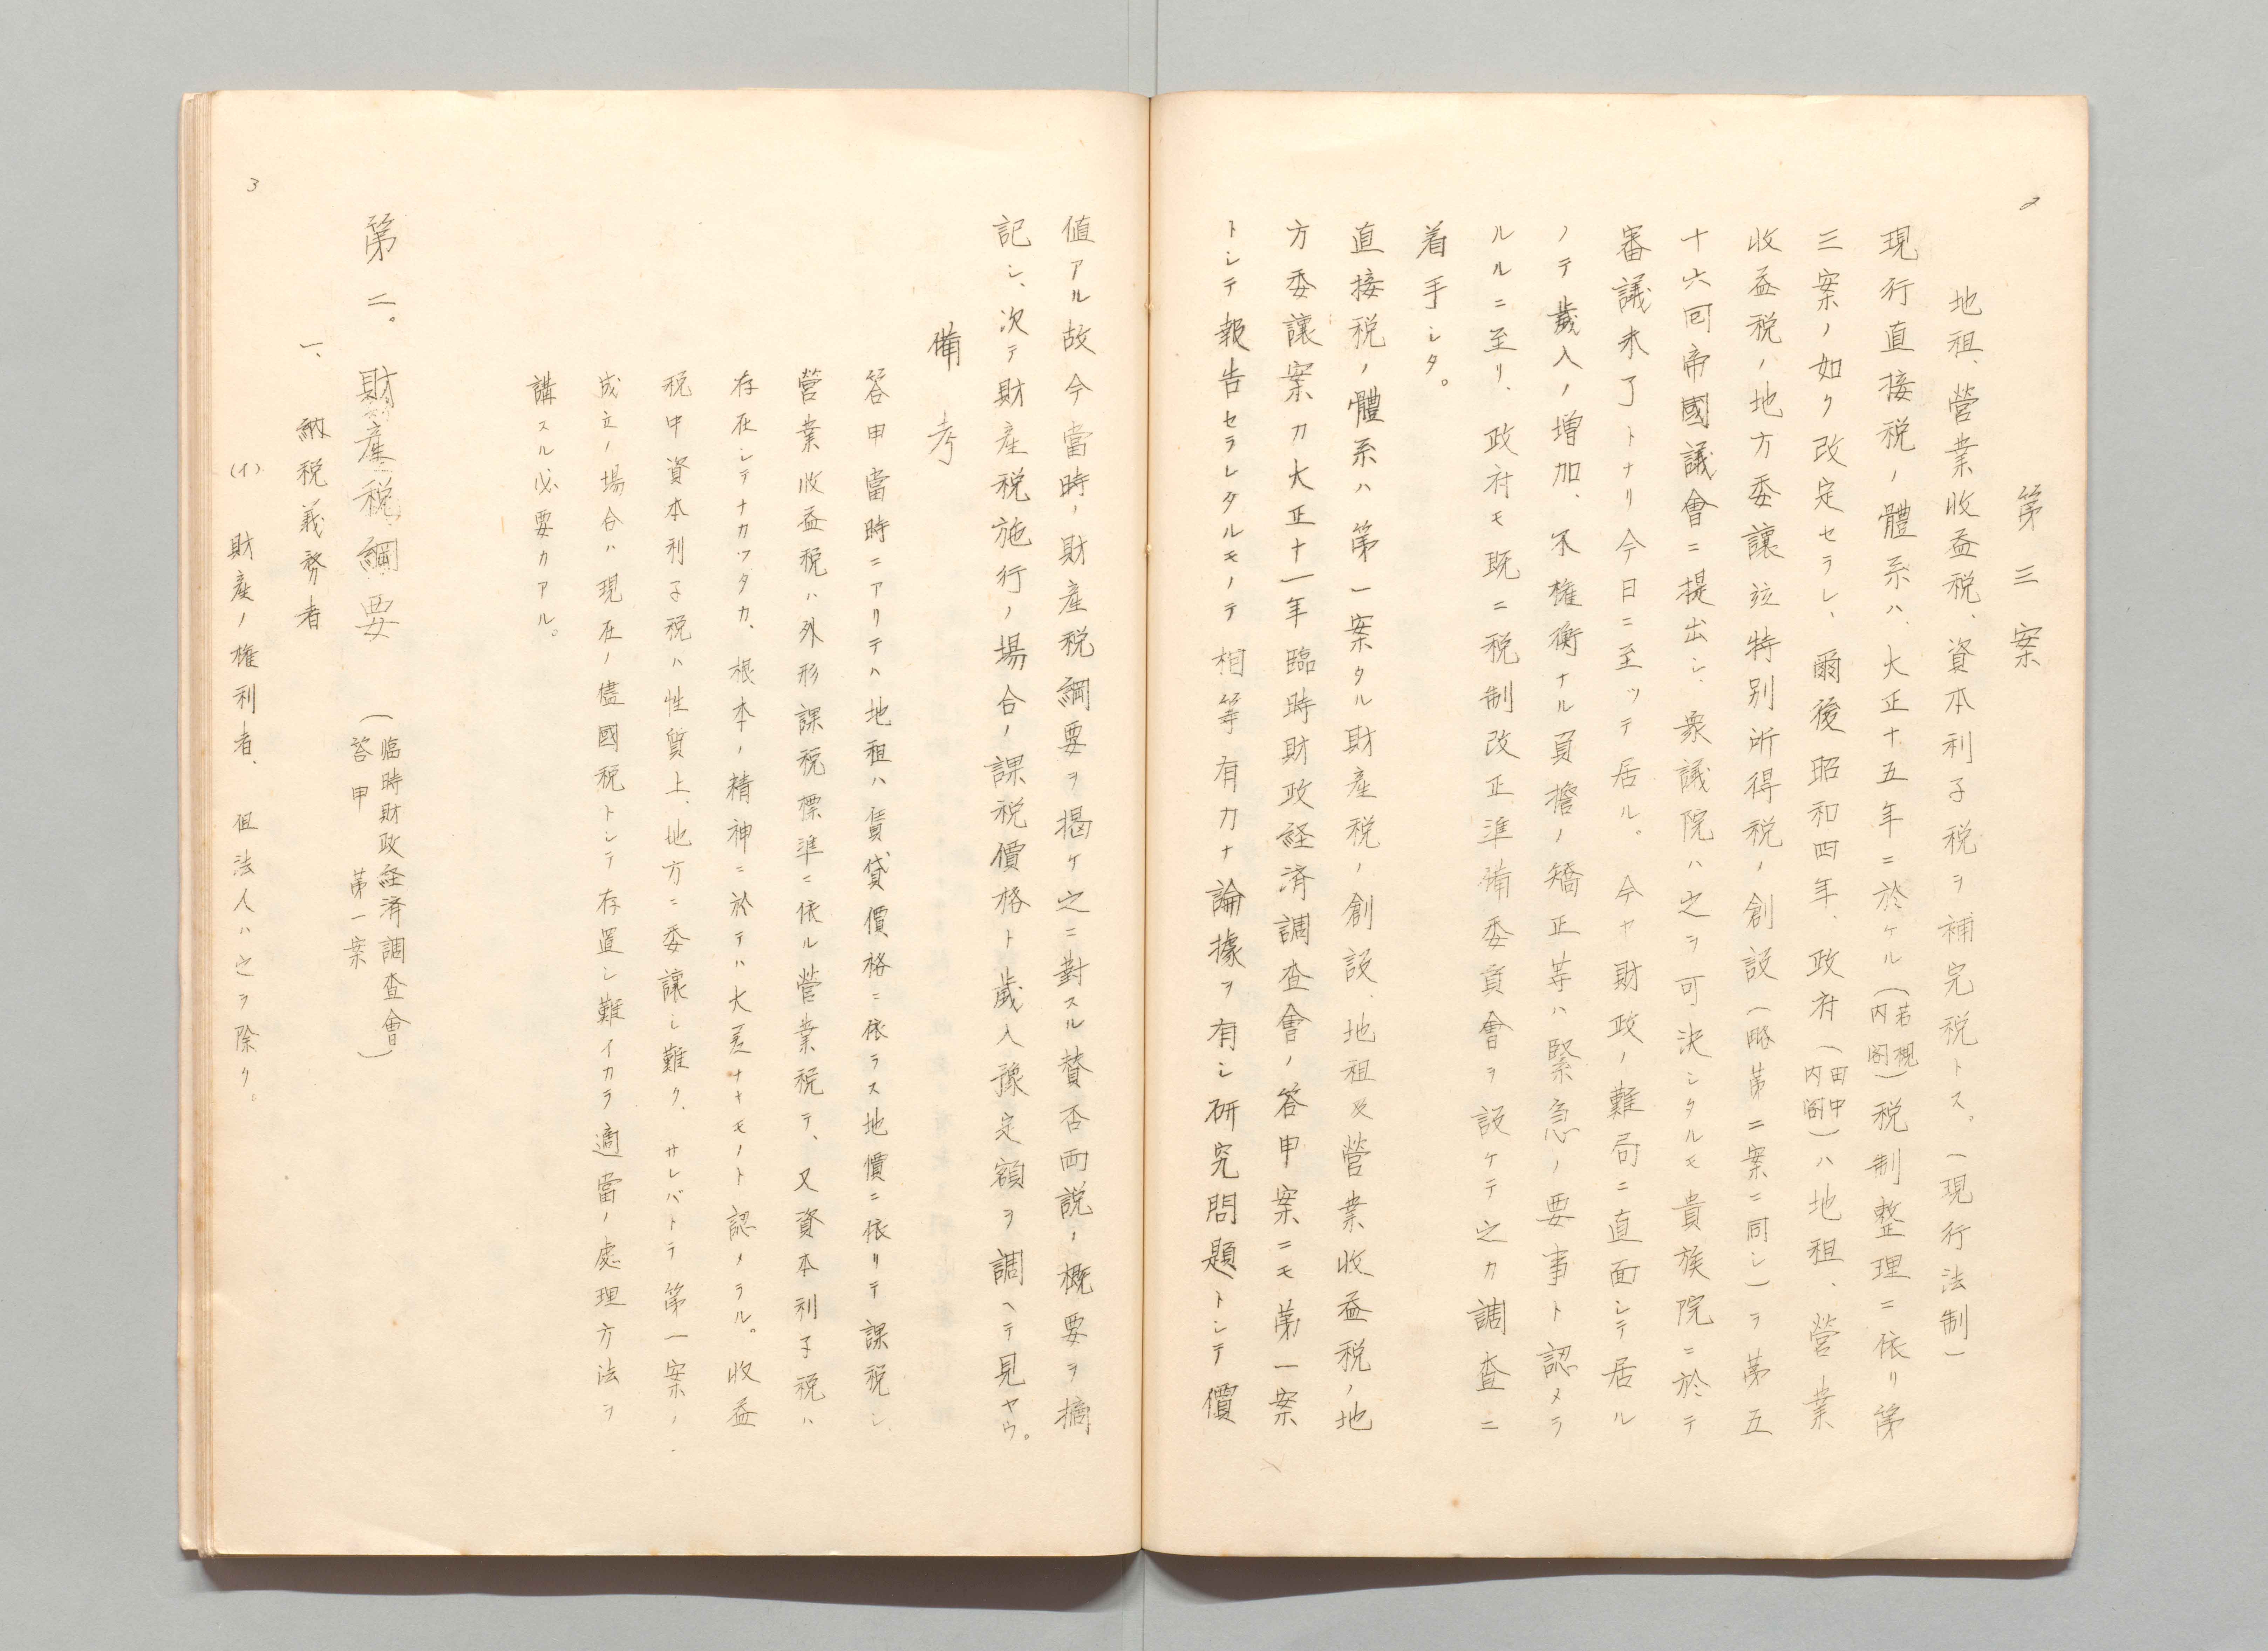 2
第三案
地租、營業收益税、資本利子税ヲ補完税トス。(現行法制)
現行直接税ノ體系ハ、大正十五年ニ於ケル(若槻内閣)税制整理ニ依リ第
三案ノ如ク改定セラレ、爾後昭和四年、政府(田中内閣)ハ地租、營業
收益税ノ地方委讓竝特別所得税ノ創設(略第二案ニ同シ)ヲ第五
十六回帝國議會ニ提出シ、衆議院ハ之ヲ可決シタルモ貴族院ニ於テ
審議未了トナリ今日ニ至ッテ居ル。今ヤ財政ノ難局ニ直面シテ居ル
ノテ歳入ノ増加、不權衡ナル負擔ノ矯正等ハ緊急ノ要事ト認メラ
ルルニ至リ、政府モ既ニ税制改正準備委員會ヲ設ケテ之カ調査ニ
着手シタ。
直接税ノ體系ハ第一案タル財産税ノ創設、地租及營業收益税ノ地
方委讓案カ大正十一年臨時財政経済調査會ノ答申案ニモ第一案
トシテ報告セラレタルモノテ相等有力ナ論據ヲ有シ研究問題トシテ價
値アル故今當時ノ財産税綱要ヲ揭ケ之ニ對スル賛否両説ノ概要ヲ摘
記シ、次テ財産税施行ノ場合ノ課税價格ト歳入豫定額ヲ調ヘテ見ヤウ。
備考
答申當時ニアリテハ地租ハ賃貸價格ニ依ラス地價ニ依リテ課税シ、
營業收益税ハ外形課税標準ニ依ル營業税テ、又資本利子税ハ
存在シテナカツタカ、根本ノ精神ニ於テハ大差ナキモノト認メラル。收益
税中資本利子税ハ性質上、地方ニ委讓シ難ク、サレバトテ第一案ノ
成立ノ場合ハ現在ノ儘國税トシテ存置シ難イカラ適當ノ處理方法ヲ
講スル必要カアル。
第二。財産税綱要(臨時財政経済調査會)
答申 第一案
一、納税義務者
(イ) 財産ノ權利者、但法人ハ之ヲ除ク。
3